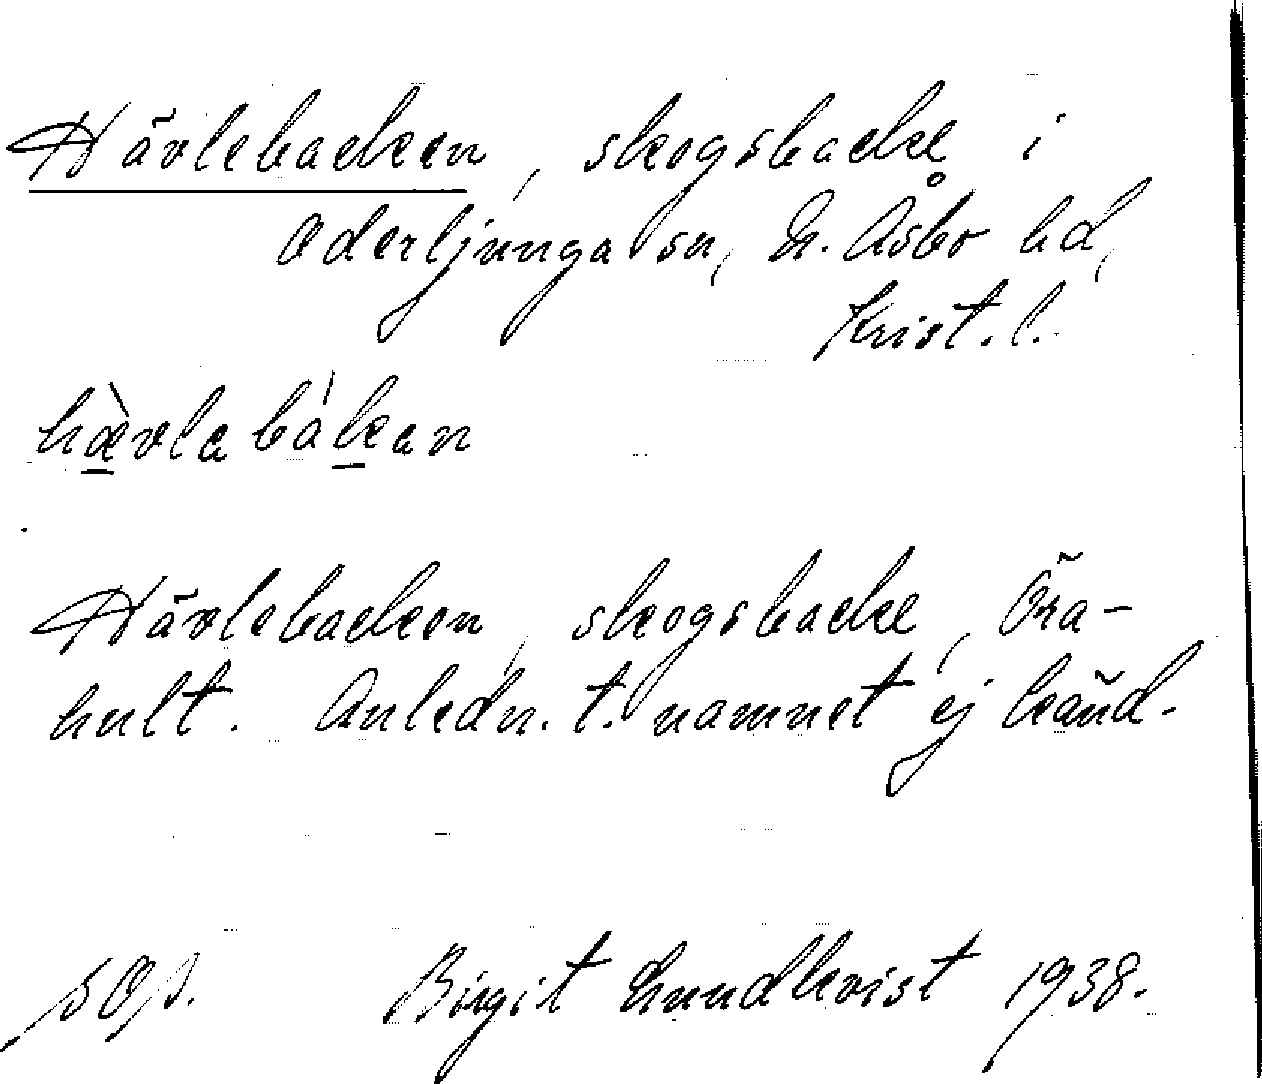 Hävlebacken, skogsbacke i
Oderljunga sn, N. Åsbo hd,
Krist. l.
hæ̀vlabákan
Hävlebacken, skogsbacke, Öra-
hult. Anledn. t. namnet ej känd.
Birgit Lundkvist 1938.